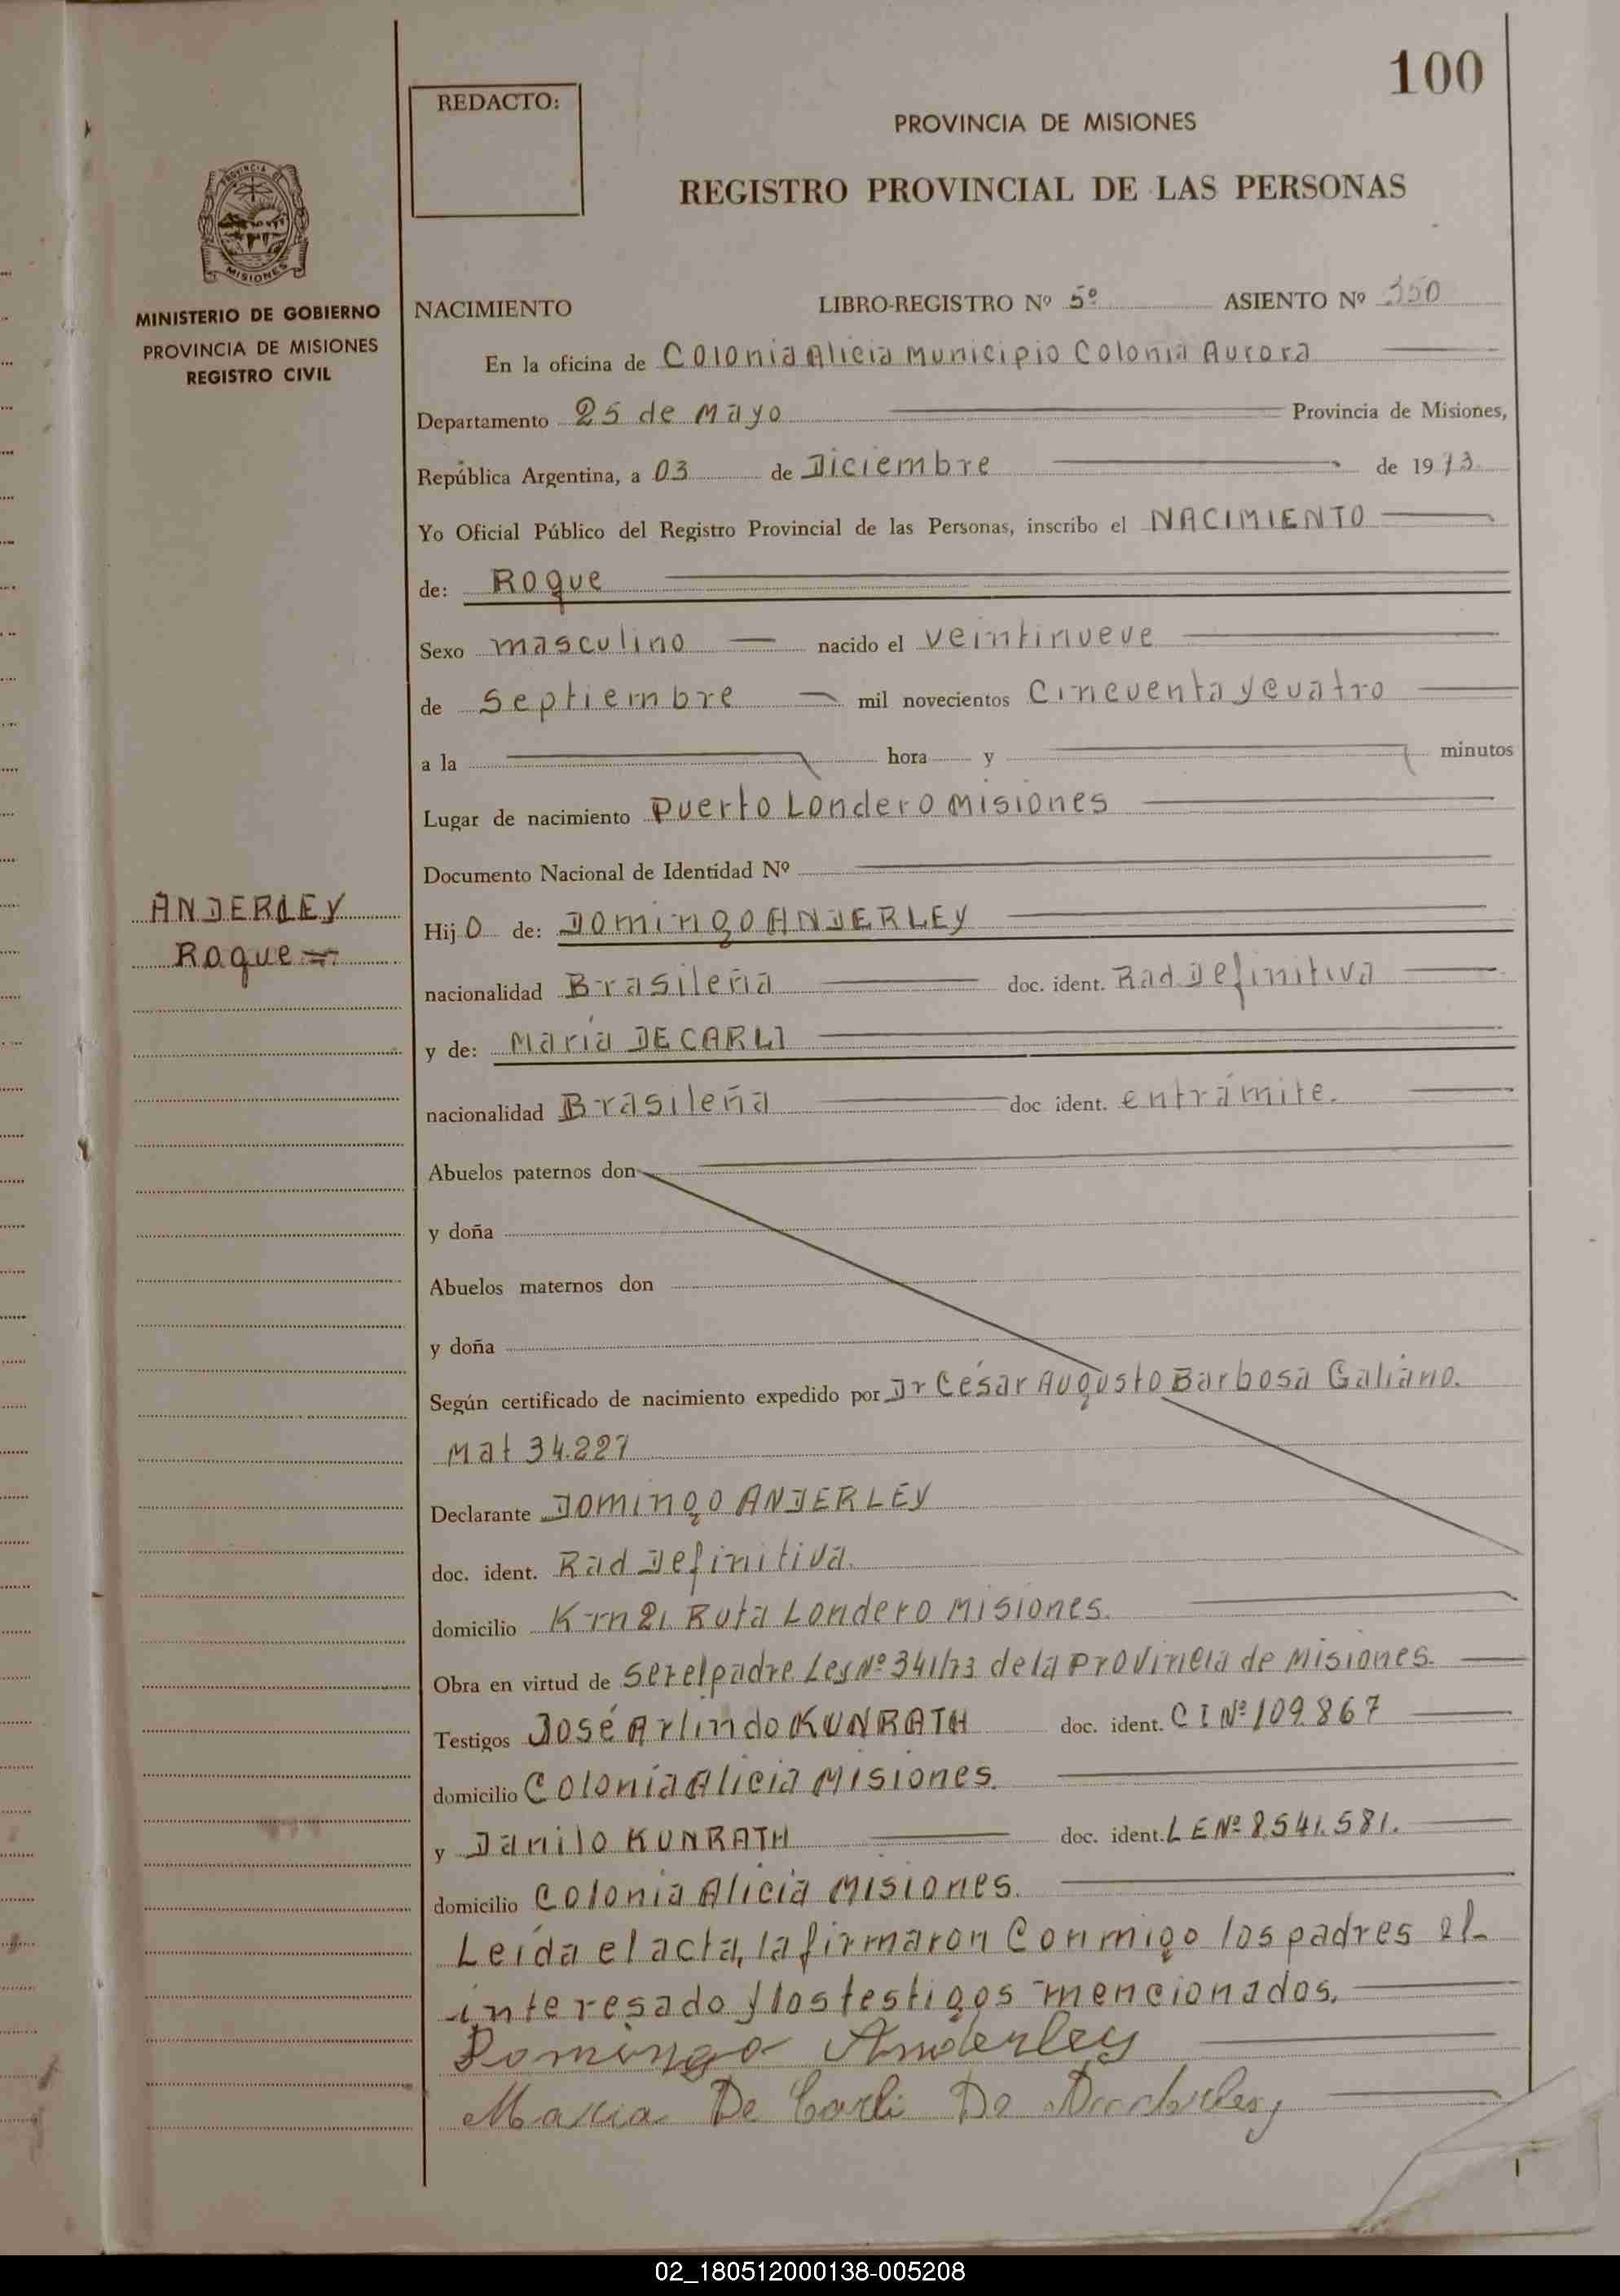 100
REDACTO:
PROVINCIA DE MISIONES
REGISTRO PROVINCIAL DE LAS PERSONAS
PROVINCIA DE
MISIONES
MINISTERIO DE GOBIERNO
PROVINCIA DE MISIONES
REGISTRO CIVIL
NACIMIENTO LIBRO-REGISTRO Nº 5º ASIENTO Nº 350
En la oficina de Colonia Alicia Municipio Colonia Aurora
Departamento 25 de Mayo Provincia de Misiones,
República Argentina, a 03 de Diciembre de 1973
Yo Oficial Público del Registro Provincial de las Personas, inscribo el NACIMIENTO
de: Roque
Sexo masculino nacido el veintinueve
de Septiembre mil novecientos Cincuenta y cuatro
a la hora y minutos
Lugar de nacimiento Puerto Londero Misiones
Documento Nacional de Identidad Nº
ANDERLEY
Roque =
Hijo de: Domingo ANDERLEY
nacionalidad Brasileña doc. ident. Rad Definitiva
y de: María DE CARLI
nacionalidad Brasileña doc ident. en trámite.
Abuelos paternos don
y doña
Abuelos maternos don
y doña
Según certificado de nacimiento expedido por Dr César Augusto Barbosa Galiano.
Mat 34.227
Declarante Domingo ANDERLEY
doc. ident. Rad Definitiva.
domicilio Km 21 Ruta Londero Misiones.
Obra en virtud de ser el padre Ley Nº 341/73 de la Provincia de Misiones.
Testigos José Arlindo KUNRATH doc. ident. C I Nº 109.867
domicilio Colonia Alicia Misiones.
y Danilo KUNRATH doc. ident. L E Nº 8.541.581.
domicilio Colonia Alicia Misiones.
Leída el acta, la firmaron Conmigo los padres el
interesado y los testigos mencionados.
Domingo Anderley
Maria De Carli De Anderley
02_180512000138-005208